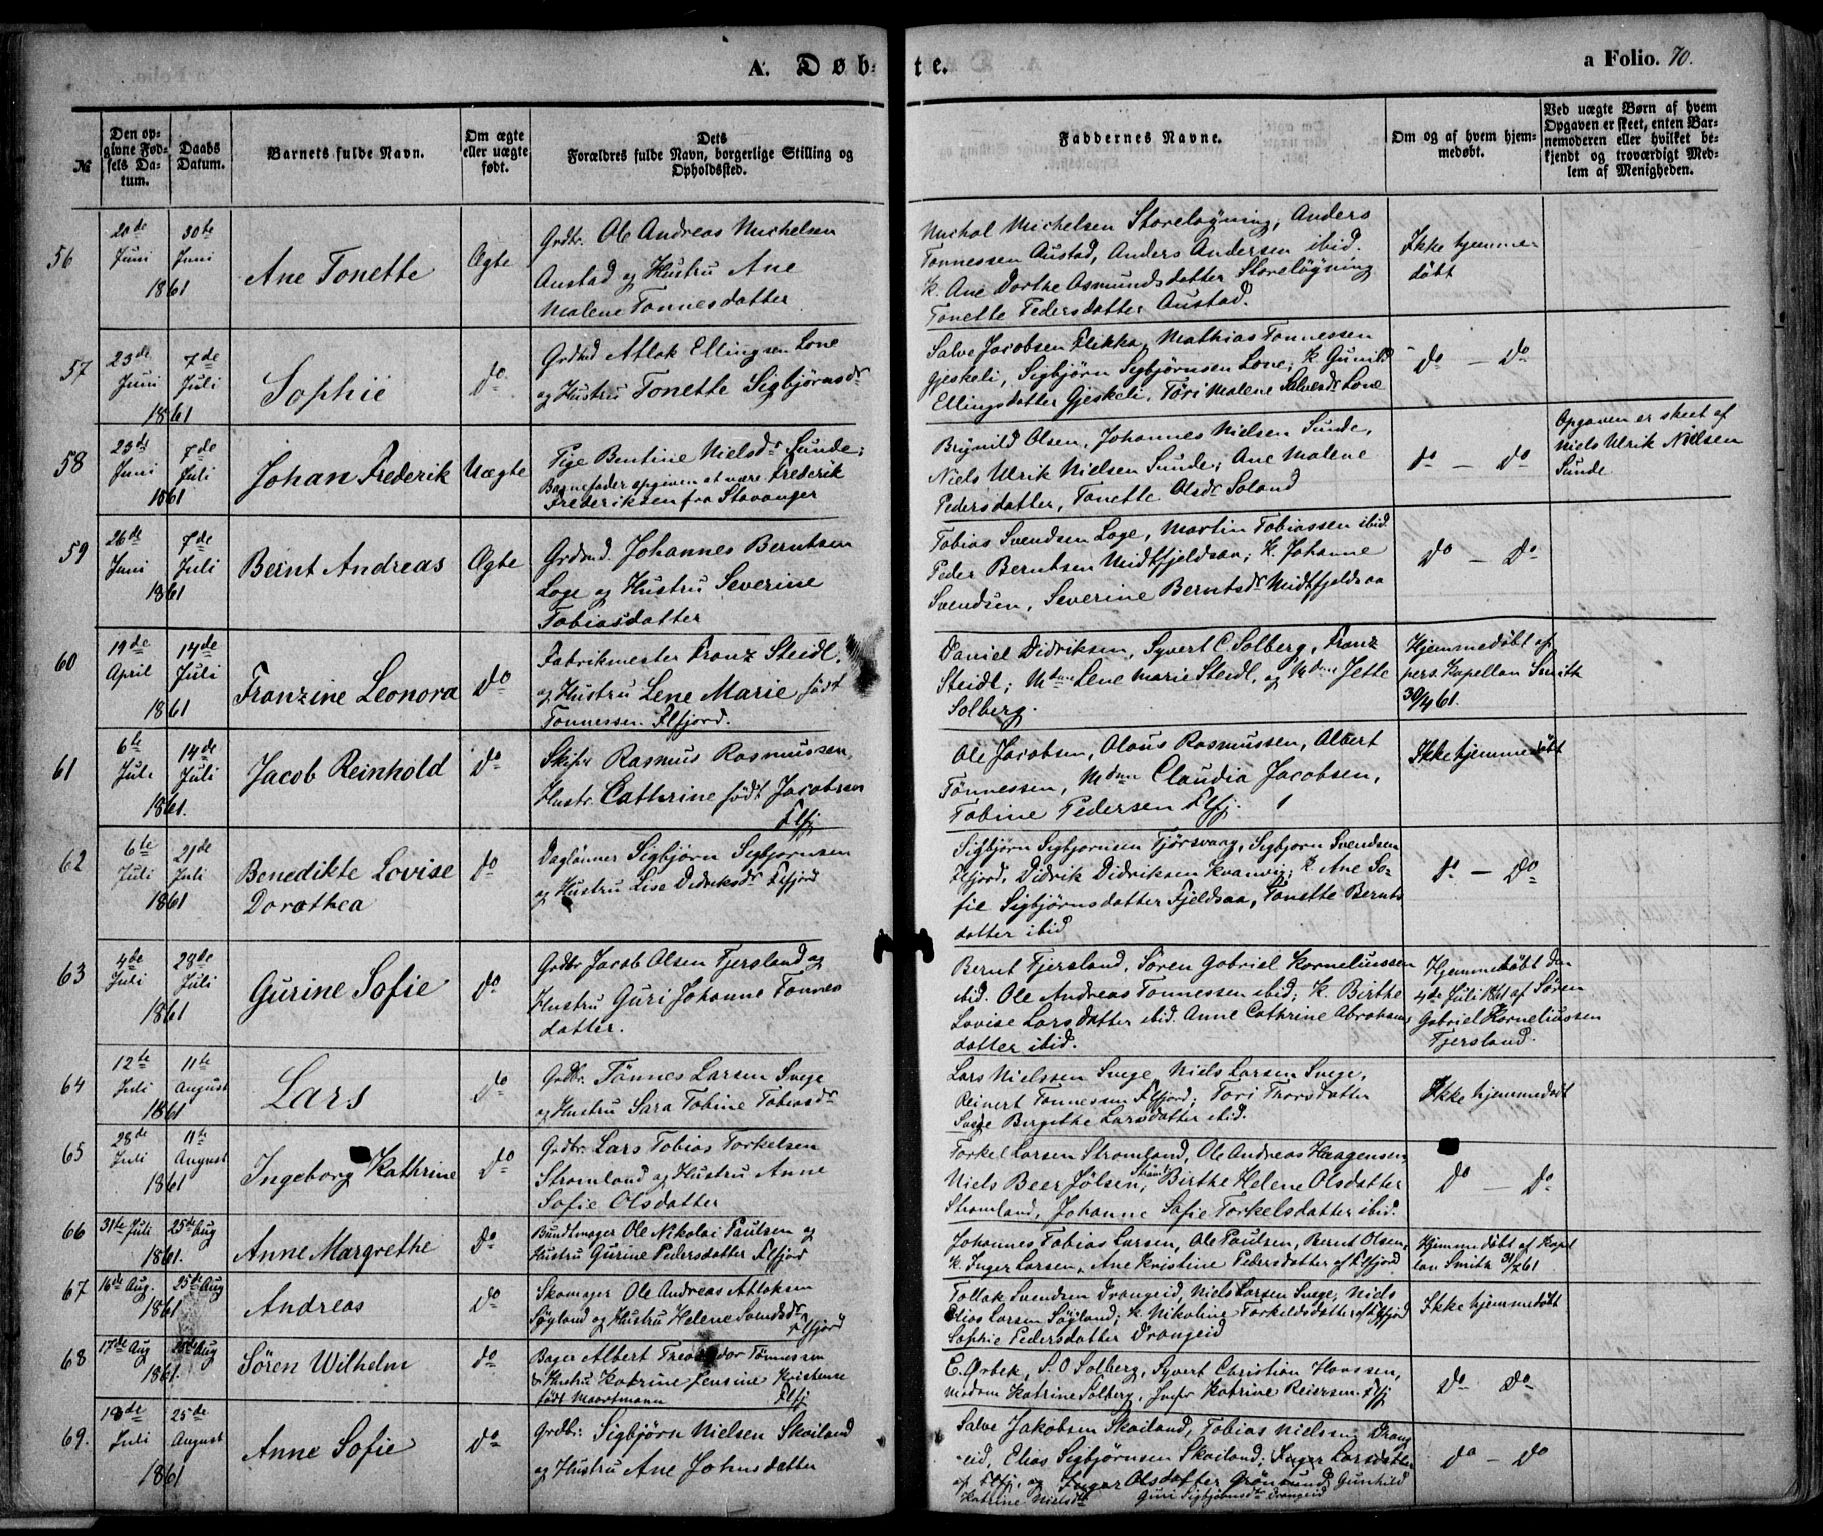 A. Døb-
te.
a Folio. 70.
№
Den op-
givne Fød-
sels Da-
tum.
Daabs
Datum.
Barnets fulde Navn.
Om ægte
eller uægte
født.
Dets
Forældres fulde Navn, borgerlige Stilling og
Opholdssted.
Faddernes Navne.
Om og af hvem hjem-
medøbt.
Ved uægte Børn af hvem
Opgaven er skeet, enten Bar-
nemoderen eller hvilket be-
kjendt og troværdigt Med-
lem af Menigheden.
56
20de
Juni
1861
30te
Juni
Ane Tonette
Ægte
Grdbr. Ole Andreas Michelsen
Austad og Hustru Ane
Malene Tønnesdatter
Michal Michelsen Storeløgning, Anders
Tønnessen Austad, Anders Andersen ibid.
K. Ane Dorthe Asmundsdatter Storeløgning
Tonette Pedersdatter Austad.
Ikke hjemme
døbt
57
23de
Juni
1861
7de
Juli
Sophie
do
Grdmd Atlak Ellingsen Lone
og Hustru Tonette Sigbjørnsdr
Salve Jacobsen Flikka, Mathias Tønnessen
Gjeskeli, Sigbjørn Sigbjørnsen Lone, K. Gunild
Ellingsdatter Gjeskeli, Tori Malene Salvesdr Lone
do — do
58
23de
Juni
1861
7de
Juli
Johan Frederik
Uægte
Pige Bentine Nielsdr Sunde;
Barnefader opgiven at være Frederik
Frederiksen fra Stavanger
Brynild Olsen, Johannes Nielsen Sunde,
Niels Ulrik Nielsen Sunde; Ane Malene
Pedersdatter, Tonette Olsdr Soland
do — do
Opgaven er skeet af
Niels Ulrik Nielsen
Sunde
59
26de
Juni
1861
7de
Juli
Bernt Andreas
Ægte
Grdmd. Johannes Berntsen
Loge og Hustru Severine
Tobiasdatter
Tobias Svendsen Loge, Martin Tobiassen ibid
Peder Berntsen Midtfjeldsaa; K. Johanne
Svendsen, Severine Berntsdr Midtfjeldsaa
do — do
60
19de
April
1861
14de
Juli
Franzine Leonora
do
Fabrikmester Franz Steidl,
og Hustru Lene Marie født
Tønnessen. Flfjord.
Daniel Didriksen, Syvert C. Solberg, Franz
Steidl; Mdme Lene Marie Steidl, og Mdme Jette
Solberg.
Hjemmedøbt af
pers. Kapellan Smith
30/4 61.
61
6te
Juli
1861.
14de
Juli
Jacob Reinhold
do
Skipr Rasmus Rasmussen,
Hustr. Cathrine født Jacobsen
Flfj
Ole Jacobsen, Olaus Rasmussen, Albert
Tønnessen, Mdme Claudia Jacobsen,
Tobine Pedersen Flfj.
Ikke hjemmedøbt
62
6te
Juli
1861
21de
Juli
Benedikte Lovise
Dorothea
do
Daglønner Sigbjørn Sigbjørnsen
og Hustru Lise Didriksdr Flfjord
Sigbjørn Sigbjørnsen Tjørsvaag, Sigbjørn Svendsen
Flfjord, Didrik Didriksen Kvanvig; K. Ane So-
fie Sigbjørnsdatter Fjeldsaa, Tonette Bernts
datter ibid
do — do
63
4de
Juli
1861
28de
Juli
Gurine Sofie
do
Grdbr Jacob Olsen Tjersland og
Hustru Guri Johanne Tønnes
datter.
Bernt Tjersland, Søren Gabriel Korneliussen
ibid. Ole Andreas Tønnessen ibid; K. Birthe
Lovise Larsdatter ibid. Anne Cathrine Abrahams
datter ibid.
Hjemmedøbt den
4de Juli 1861 af Søren
Gabriel Korneliussen
Tjersland.
64
12te
Juli
1861
11te
August
Lars
do
Grdbr. Tønnes Larsen Svege
og Hustru Sara Tobine Tobiasdr
Lars Nielssen Svege, Niels Larsen Svege,
Reinert Tønnessen Flfjord; Tori Thorsdatter
Svege Bergithe Larsdatter ibid.
Ikke hjemmedøbt
65
28de
Juli
1861
11te
August
Ingeborg Kathrine
do
Grdbr. Lars Tobias Torkelsen
Stromland og Hustru Anne
Sofie Olsdatter
Torkel Larsen Stromland, Ole Andreas Haagensen,
Niels Beer Jølsen, Birthe Helene Olsdatter
Stromland, Johanne Sofie Torkelsdatter ibid.
do — do
66
31te Juli
1861.
25de Aug
Anne Margrethe
do
Bundtmager Ole Nikolai Paulsen og
Hustru Gurine Pedersdatter Flfjord
Johannes Tobias Larsen, Ole Paulsen, Bernt Olsen,
K. Inger Larsen, Ane Kristine Pedersdatter af Flfjord
Hjemmedøbt af Kapel
lan Smith 31/7 61
67
16de Aug.
1861
25de Aug
Andreas
do
Skomager Ole Andreas Atlaksen
Søyland og Hustru Helene Svendsdr
Flfjord
Tollak Svendsen Drangeid, Niels Larsen Svege, Niels
Elias Larsen Søyland; K. Nikoline Torkeldsdatter af Flfjord
Sophie Pedersdatter Drangeid
Ikke hjemmedøbt
68
17de Aug
1861
25de Aug
Søren Wilhelm
do
Bager Albert Treodor Tønnessen
& Hustru Katrine Jensine Kristense
født Moortmann Flfj
E. Ørbek, S. O Solberg, Syvert Christian Hanssen,
Madam Katrine Solberg, Jmfr Katrine Reiersen. Flfj
do do
69.
18de
Juli
1861
25de
August
Anne Sofie
do
Grdbr: Sigbjørn Nielsen Skailand
og Hustru Ane Johnsdatter
Salve Jakobsen Skailand, Tobias Nielssen Drang
eid, Elias Sigbjørnsen Skailand; Inger Larsdatter
af Flfj, og Inger Olsdatter Grønsund, Gunhild
Katrine Nielsdtr Guri Sigbjørnsdtr Drangeid
do — do